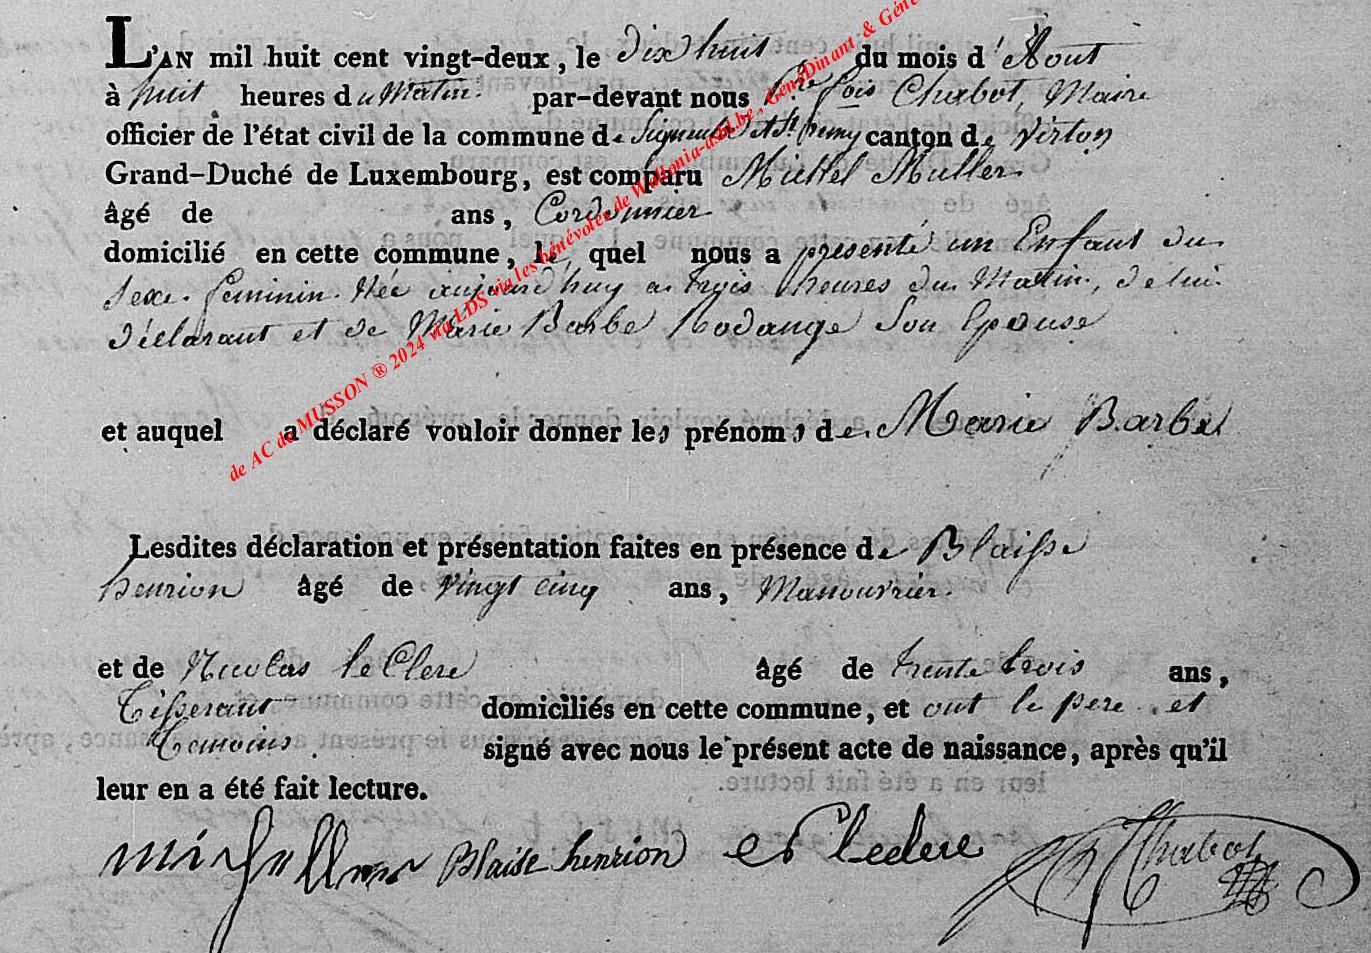 L'AN mil huit cent vingt-deux, le dix huit du mois d'Aout
à huit heures du Matin par-devant nous fois Chabot, Maire
officier de l'état civil de la commune de Signeulx et St remy canton de Virton
Grand-Duché de Luxembourg, est comparu Michel Muller
âgé de ans, Cordonnier
domicilié en cette commune, le quel nous a presenté un Enfant du
Sexe feminin Née aujourd'huy a trois heures du Matin, de lui
déclarant et de Marie Barbe Rodange Son Epouse
et auquel a déclaré vouloir donner les prénoms de Marie Barbe
Lesdites déclaration et présentation faites en présence de Blaisse
henrion âgé de vingt cinq ans, Manouvrier
et de Nicolas le Clere âgé de trente trois ans,
Tisserant domiciliés en cette commune, et ont le pere et
Temoins signé avec nous le présent acte de naissance, après qu'il
leur en a été fait lecture.
Blaise henrion Leclere Chabot
de AC de MUSSON ® 2024 via LDS via les bénévoles de Wallonia-asbl.be, GénéDinant & Géné